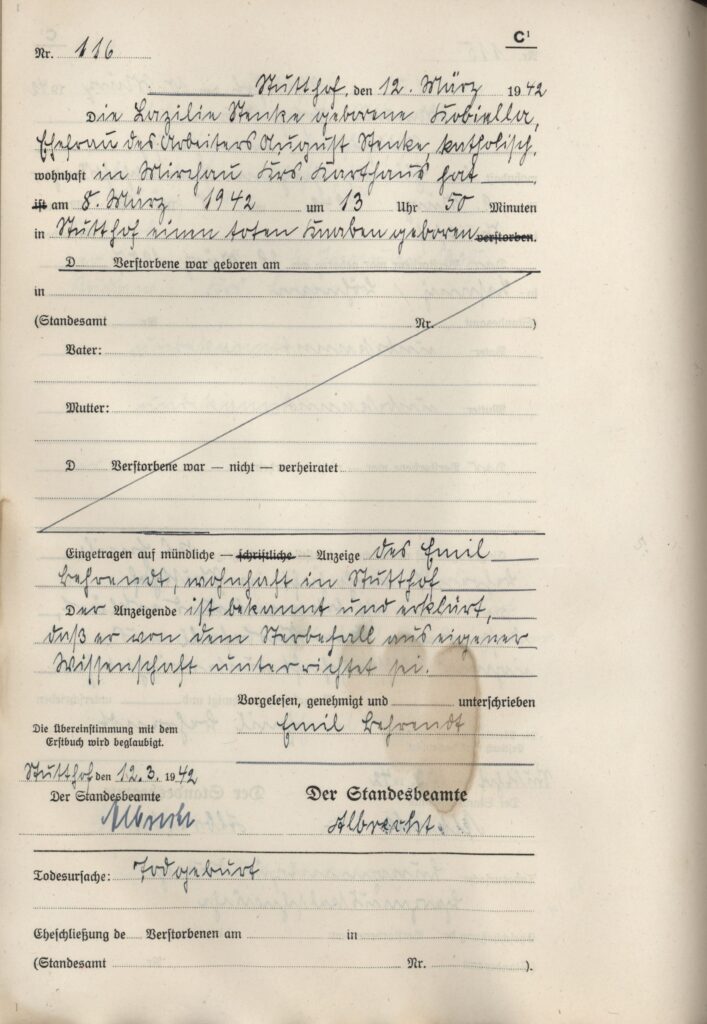 C¹
Nr. 116
Stutthof, den 12. März 1942
Die Lazilie Stenke geborene Kobiella,
Ehefrau des Arbeiters August Stenke, katholisch,
wohnhaft in Mirchau Krs. Karthaus hat
ist am 8. März 1942 um 13 Uhr 50 Minuten
in Stutthof einen toten Knaben geboren verstorben.
D Verstorbene war geboren am
in
(Standesamt Nr. )
Vater:
Mutter:
D Verstorbene war — nicht — verheiratet
Eingetragen auf mündliche — schriftliche — Anzeige des Emil
Behrendt, wohnhaft in Stutthof
Der Anzeigende ist bekannt und erklärt,
daß er von dem Sterbefall aus eigener
Wissenschaft unterrichtet sei.
Vorgelesen, genehmigt und unterschrieben
Emil Behrendt
Die Übereinstimmung mit dem
Erstbuch wird beglaubigt.
Stutthof den 12.3. 1942
Der Standesbeamte
Albrecht
Der Standesbeamte
Albrecht.
Todesursache: Todgeburt
Eheschließung de Verstorbenen am in
(Standesamt Nr. ).